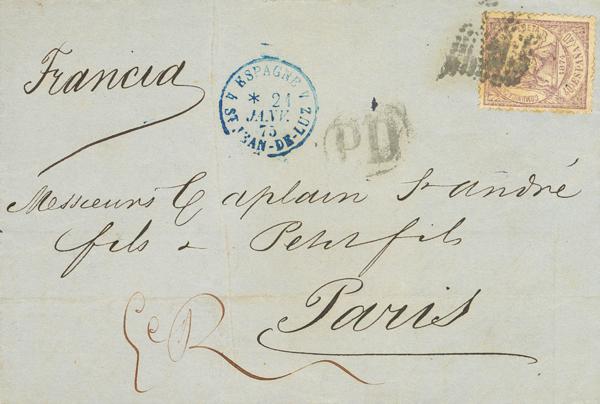 Francia
ESPAGNE
* 21
JANV.
75
ST JEAN-DE-LUZ
PD
Messieurs Caplain St André
fils & Petit fils
Paris